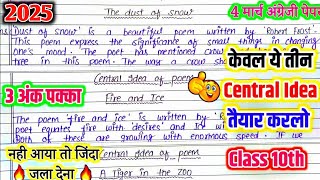 2025
The dust of snow
4 मार्च अंग्रेजी पेपर
Dust of snow is a beautiful poem written by 'Robert Frost'.
This poem express the significance of small things in changing
one's mood. The poet has mentioned crow
tree in this poem. The way the cr
केवल ये तीन
Central Idea
तैयार करलो
Class 10th
3 अंक पक्का
Central Idea of poem
Fire and Ice
The poem 'fire and ice' is written by 'R
poet equates fire with desires and ity wi
Both of these are growing with enormous speed. If we
नही आया तो जिंदा
जला देना
Central Idea of poem
A Tiger in the Zoo